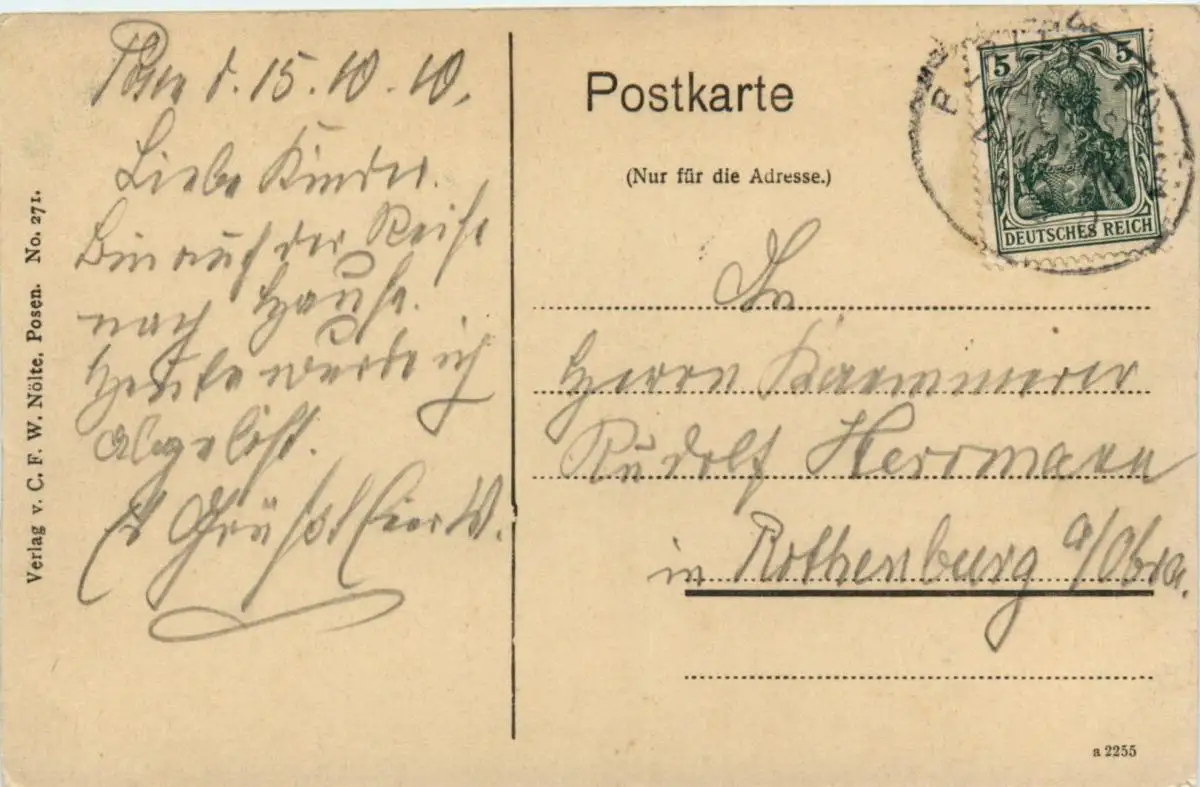 Posen d. 15.10.10.
Liebe Kinder.
Bin auf der Reise
nach Hause.
Heute wurde ich
abgelöst.
Es grüßt Euer W.
Verlag v. C. F. W. Nölte, Posen. No. 271.
Postkarte
(Nur für die Adresse.)
5 5
DEUTSCHES REICH
An
Herrn Kaemmerer
Rudolf Herrmann
in Rothenburg a/Obra.
a 2255